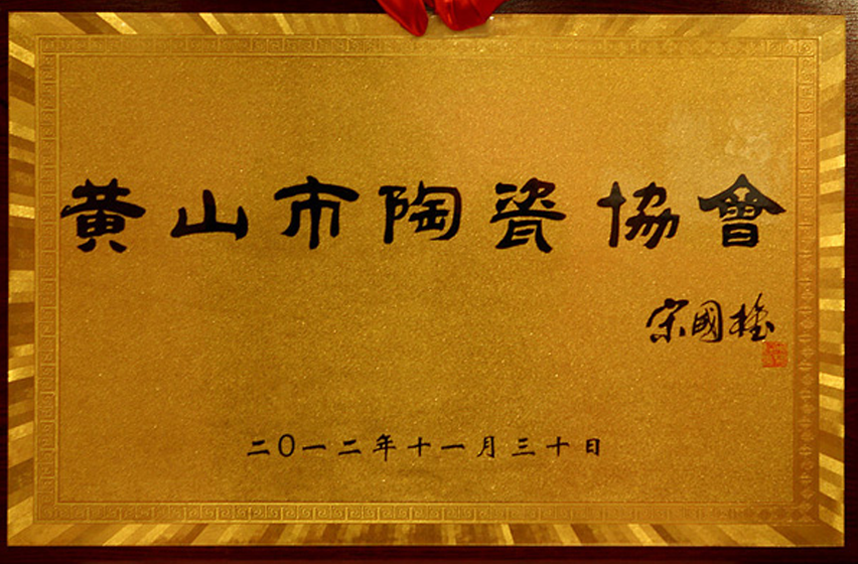 黄山市陶瓷協會
宋國權
二〇一二年十一月三十日